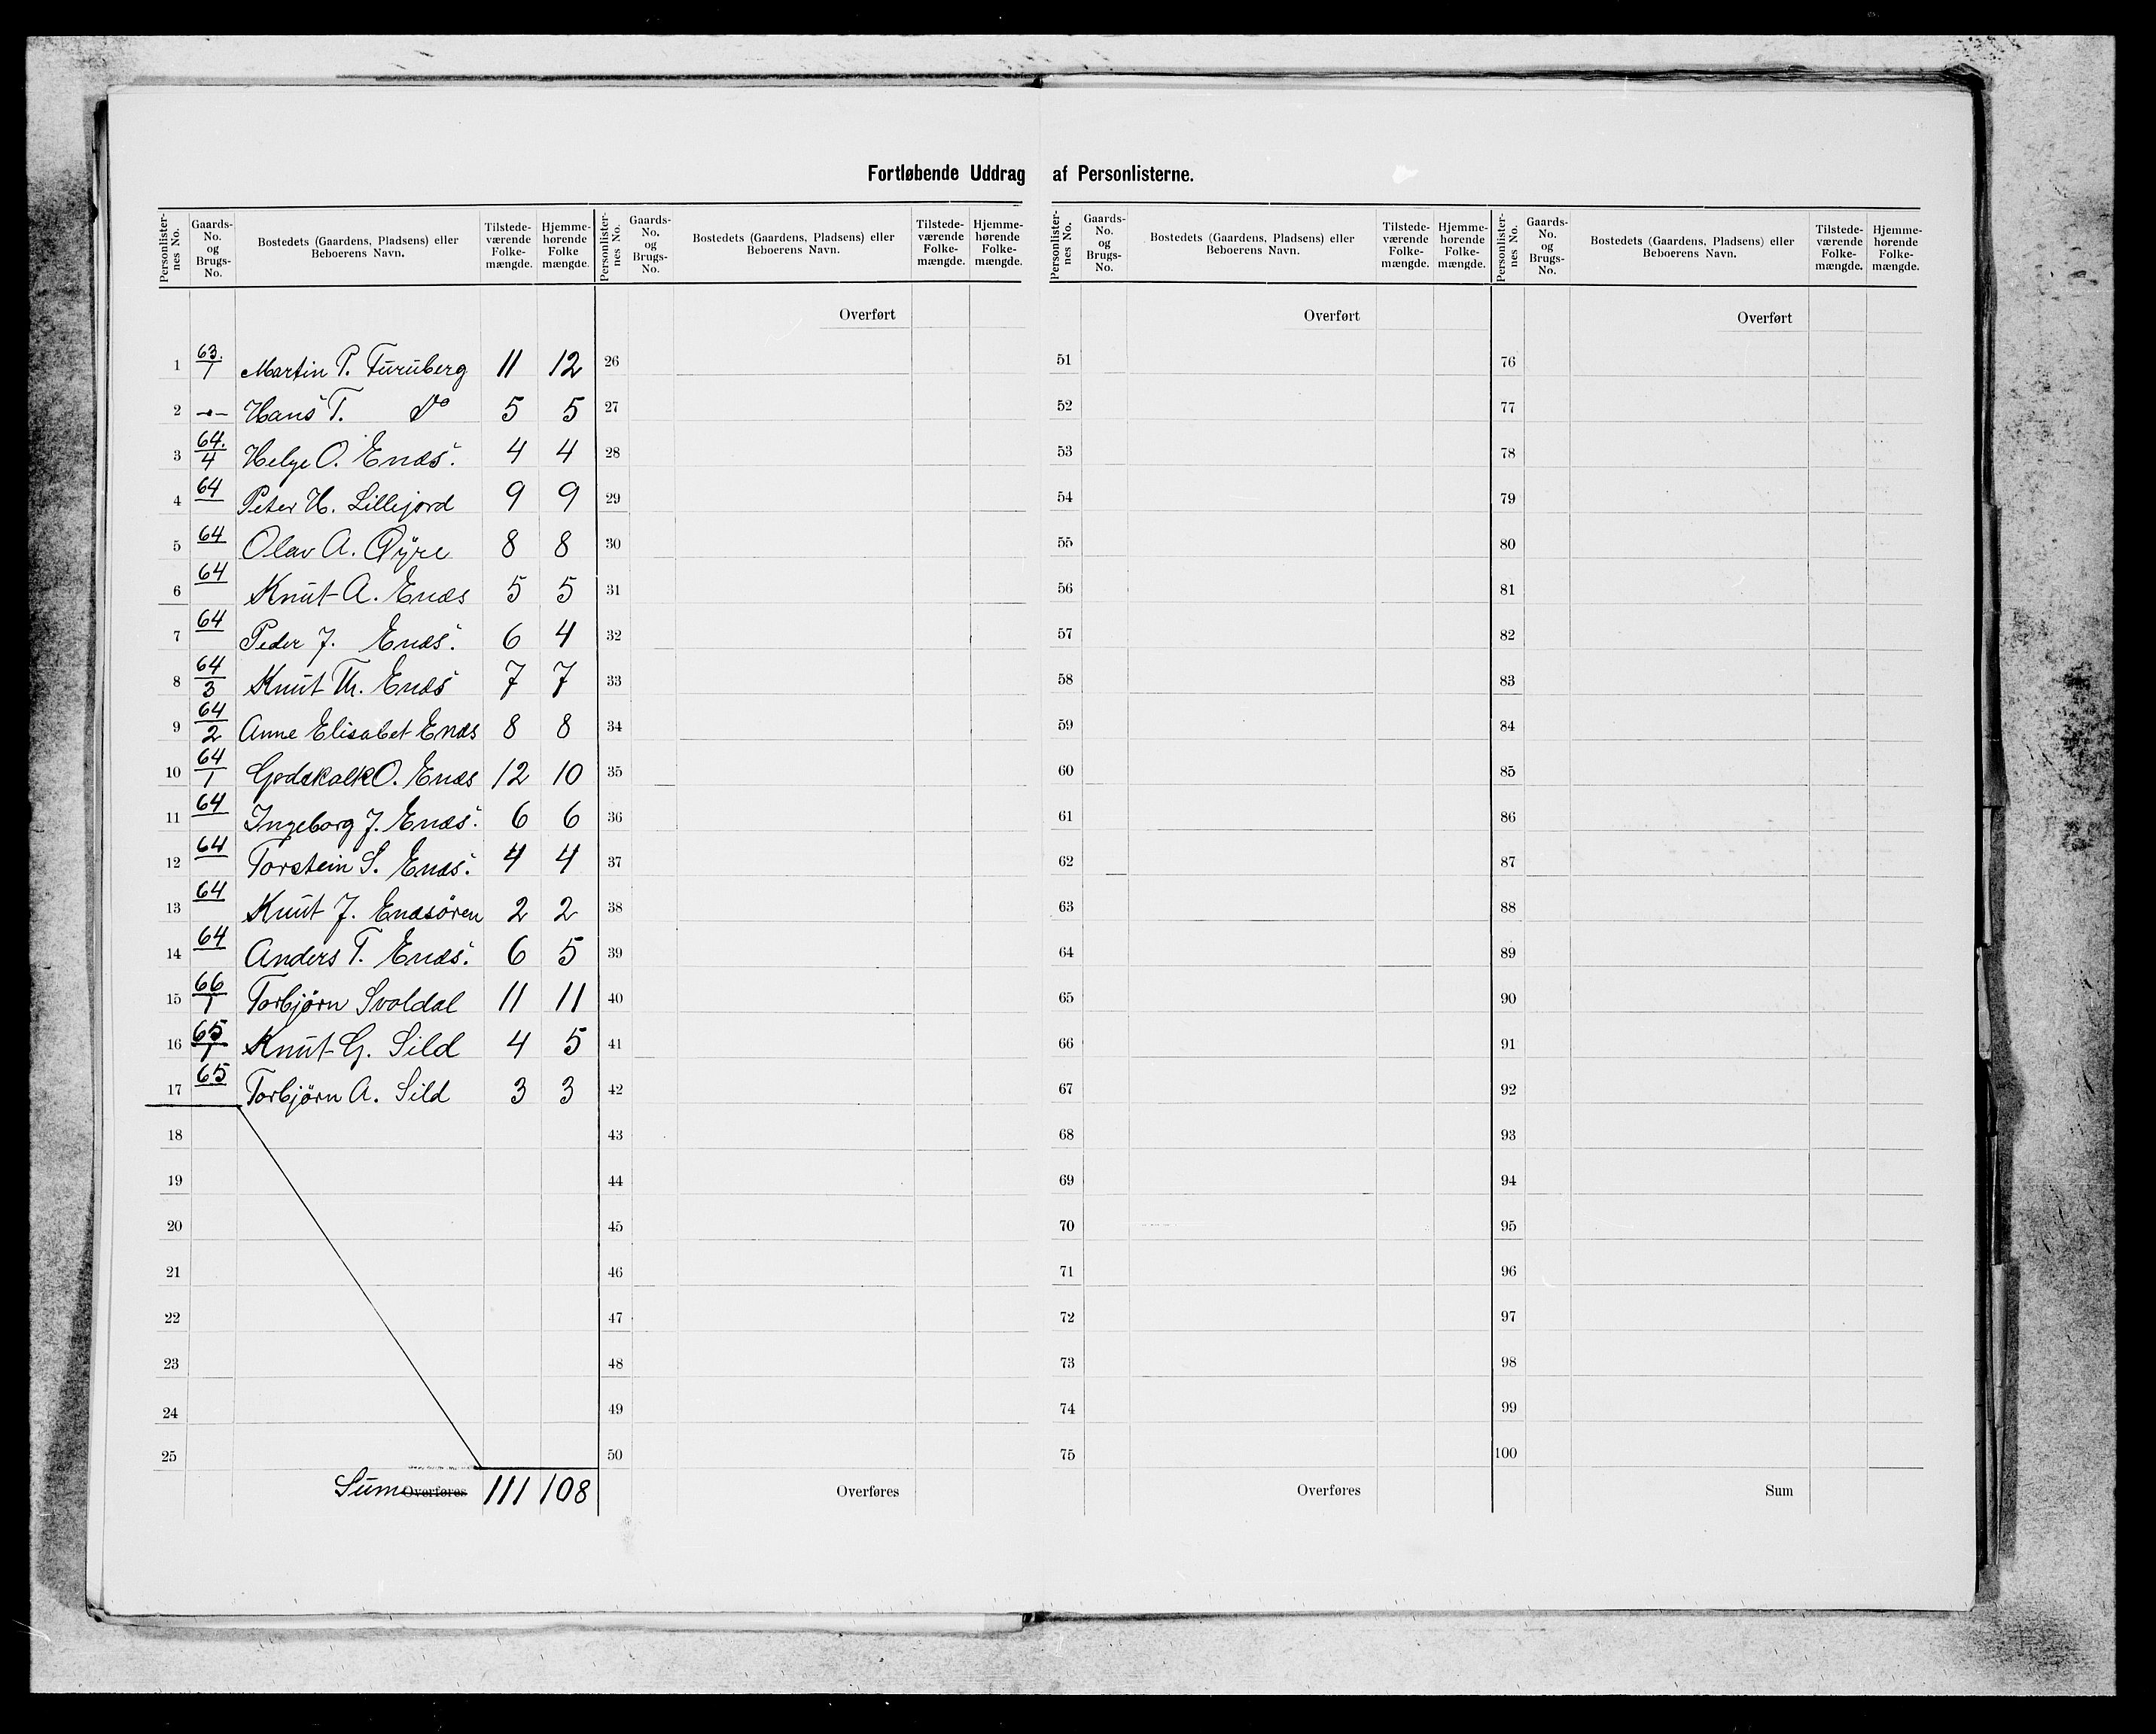 Fortløbende Uddrag af Personlisterne.
Personlister-nes No. | Gaards-No. og Brugs-No. | Bostedets (Gaardens, Pladsens) eller Beboerens Navn. | Tilstede-værende Folke-mængde. | Hjemme-hørende Folke mængde.
Personlister-nes No. | Gaards-No. og Brugs-No. | Bostedets (Gaardens, Pladsens) eller Beboerens Navn. | Tilstede-værende Folke-mængde. | Hjemme-hørende Folke-mængde.
Personlister-nes No. | Gaards-No. og Brugs-No. | Bostedets (Gaardens, Pladsens) eller Beboerens Navn. | Tilstede-værende Folke-mængde. | Hjemme-hørende Folke-mængde.
Personlister-nes No. | Gaards-No. og Brugs-No. | Bostedets (Gaardens, Pladsens) eller Beboerens Navn. | Tilstede-værende Folke-mængde. | Hjemme-hørende Folke-mængde.
Overført Overført Overført
1 63./1 Martin P. Furuberg 11 12 26 51 76
2 -"- Hans T. Do 5 5 27 52 77
3 64./4 Helge O. Enæs. 4 4 28 53 78
4 64 Peter H. Lillejord 9 9 29 54 79
5 64 Olav A. Øyre 8 8 30 55 80
6 64 Knut A. Enæs 5 5 31 56 81
7 64 Peder J. Enæs. 6 4 32 57 82
8 64/3 Knut Th. Enæs 7 7 33 58 83
9 64/2 Anne Elisabet Enæs 8 8 34 59 84
10 64/1 Godskalk O. Enæs 12 10 35 60 85
11 64 Ingeborg J. Enæs. 6 6 36 61 86
12 64 Torstein S. Enæs. 4 4 37 62 87
13 64 Knut J. Enæsören 2 2 38 63 88
14 64 Anders T. Enæs. 6 5 39 64 89
15 66/1 Torbjørn Svoldal 11 11 40 65 90
16 65/1 Knut G. Sild 4 5 41 66 91
17 65 Torbjørn A. Sild 3 3 42 67 92
18 43 68 93
19 44 69 94
20 45 70 95
21 46 71 96
22 47 72 97
23 48 73 98
24 49 74 99
25 50 75 100
Sum Overføres 111 108 Overføres Overføres Sum